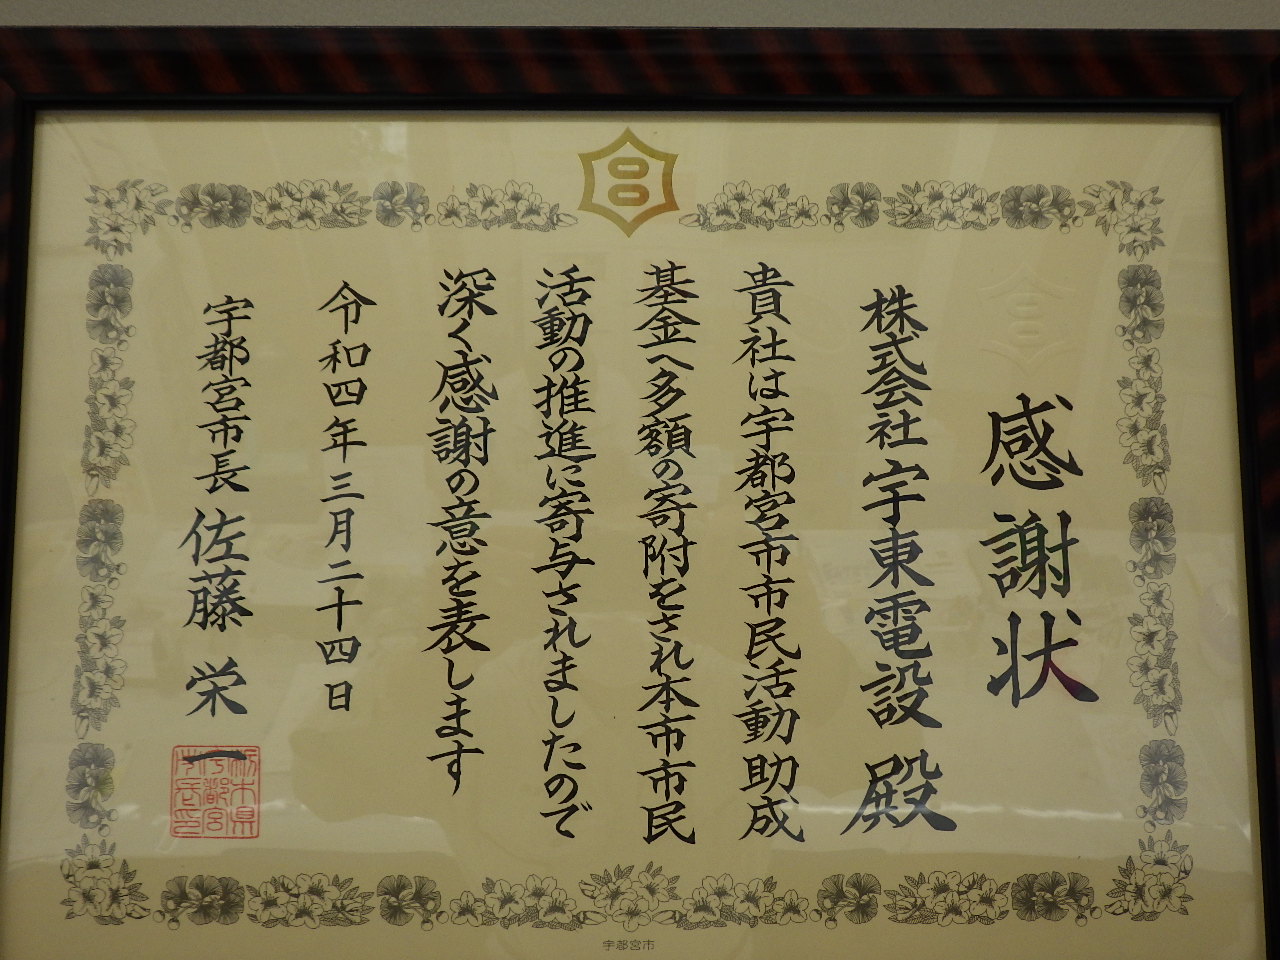 感謝状
株式会社宇東電設 殿
貴社は宇都宮市市民活動助成
基金へ多額の寄附をされ本市市民
活動の推進に寄与されましたので
深く感謝の意を表します
令和四年三月二十四日
宇都宮市長 佐藤栄一
栃木県
宇都宮
市長印
宇都宮市